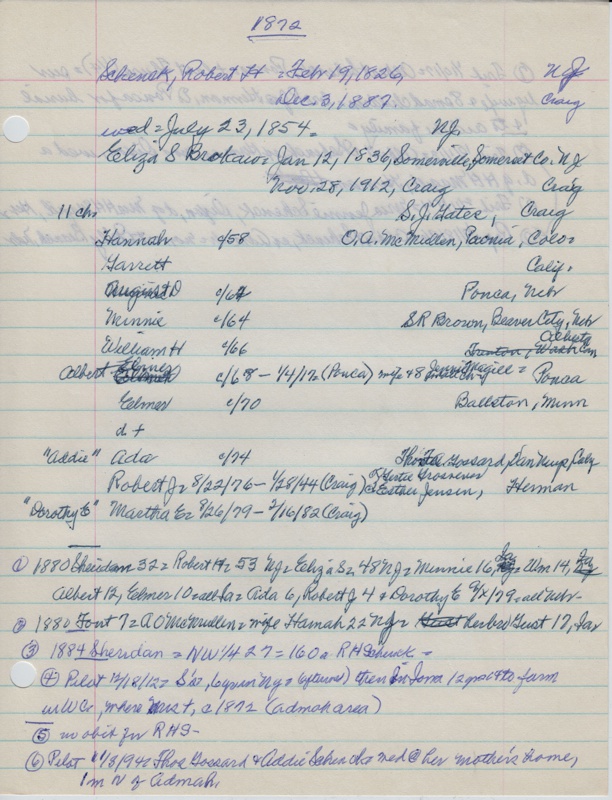 1872
Schenck, Robert H = Feb 19, 1826, NJ
Dec. 3, 1887 Craig
wed = July 23, 1854 = NJ
Eliza S Brokaw = Jan 12, 1836, Somerville, Somerset Co. NJ
Nov. 28, 1912, Craig Craig
11 chs S. J. Gates, Craig
Hannah c/58 O.A. McMullen, Paonia, Colo =
Garrett Calif.
August D c/62 Ponca, Nebr
Minnie c/64 S R Brown, Beaver City, Nebr
William H c/66 Alberta Can
Albert c/68 - 1/4/12 (Ponca) m/e 48 = Ponca
Elmer c/70 Ballston, Minn
d +
"Addie" Ada c/74 Thos Gossard, San Calif
Robert J = 8/22/76 - 1/28/44 (Craig) & Esther Jensen, Herman
"Dorothy E" Martha E = 8/26/79 - 2/16/82 (Craig)
① 1880 Sheridan 32 = Robert H = 53 NJ = Eliza S = 48 NJ = Minnie 16, Ia = Wm 14,
Albert 12, Elmer 10 = all Ia = Ada 6, Robert J 4 & Dorothy E 9/x/79 = all Nebr -
② 1880 Font 7 = A O McMullen = wife Hannah 22 NJ = 17, Ia
③ 1884 Sheridan = NW 1/4 27 = 160a R H Schenck =
④ Pilot 12/18/12 = S'set, NJ then in Iowa 12 to farm
in WCo, where c 1872 (Admah area)
⑤ no obit for RHS -
⑥ Pilot Thos Gossard & Addie Schenck wed @ her mother's home,
1 m N of Admah,